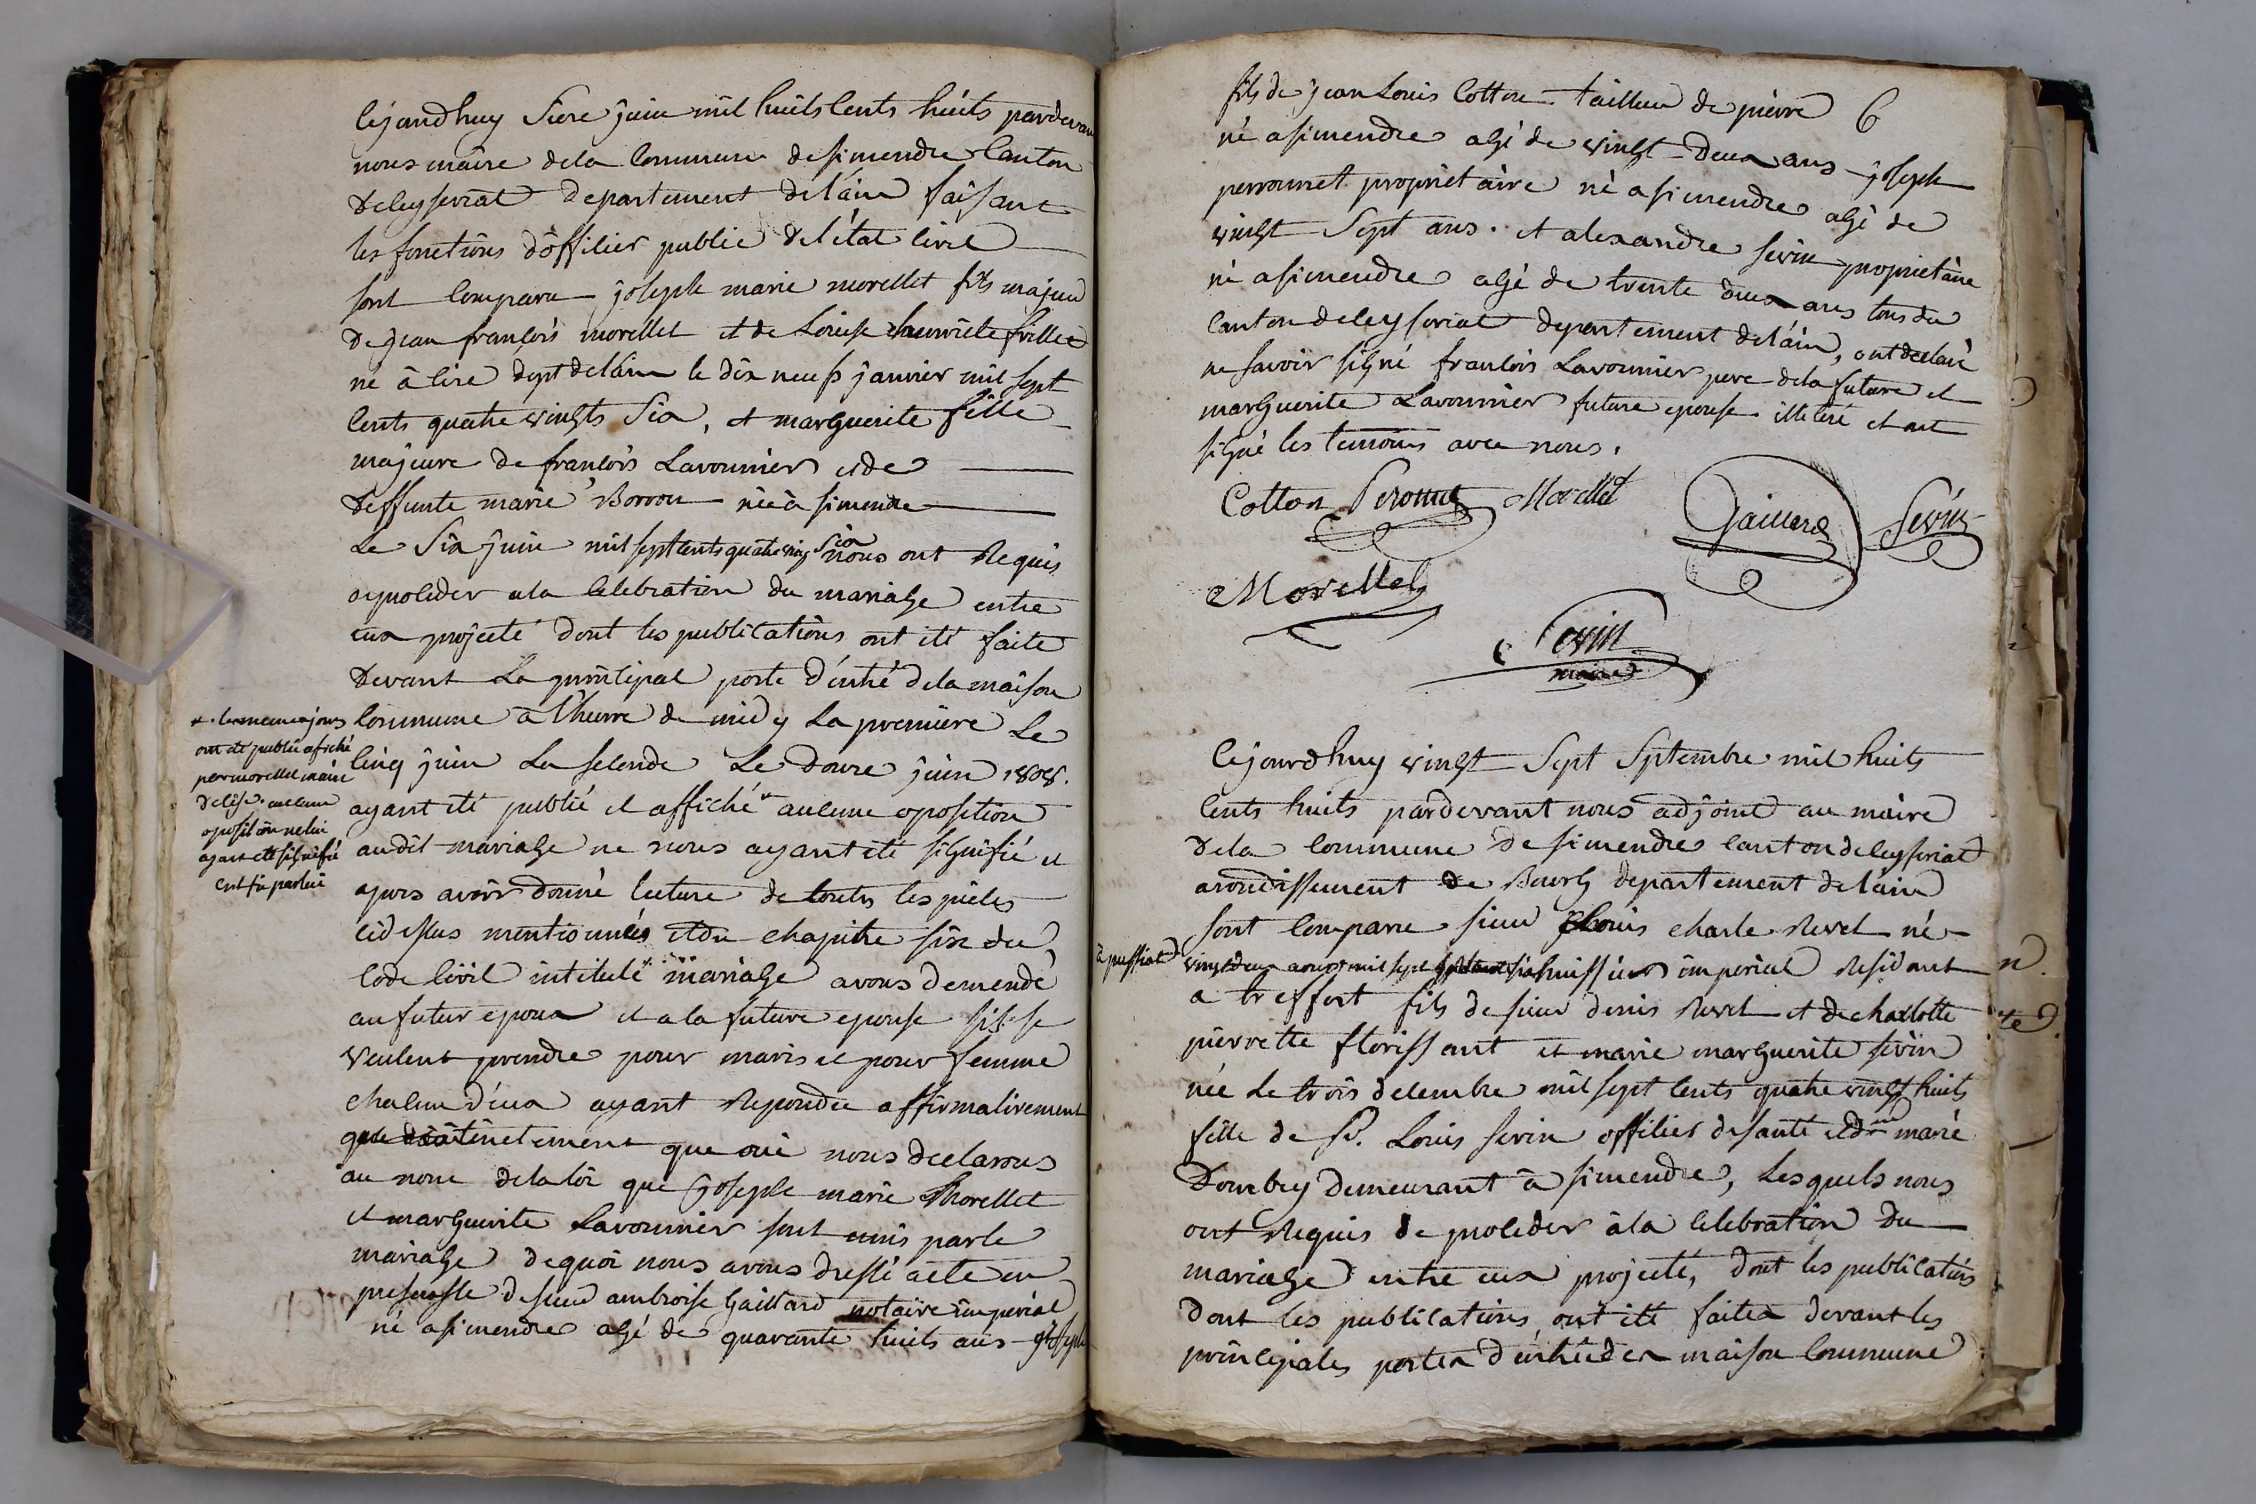 Cejourdhuy Sieze juin mil huits cents huits pardevan
nous maire dela Commune desimendre Canton
deleyseriat departement delain faisant
les fonctions d'officier public del'état civil
sont Comparu joseph marie morellet fils majeur
de jean françois morellet et de Louise
né à dept delain le dix neuf janvier mil sept
Cents quatre vingts Six, et marguerite fille
majeure de françois Lavounier et de
deffunte marie née à simendre
Le Six juin mil septcents quatreving Six nous ont Requis
de proceder ala Celebration du mariage entre
eux projeté dont les publications ont été faite
devant La principal porte d'entré dela maison
Commune a l'heure de midy La premiere Le
Cinq juin La seconde Le douze juin 1808.
ayant été publié et affiché aucune oposition
audit mariage ne nous ayant été signifié et
apres avoir donné lecture de toutes les pieces
cidessus mentionnés et du chapitre six du
Code Civil intitulé mariage avons demendé
au futur epoux et a la future epouse sils se
veulent prendre pour maris et pour femme
chacun d'eux ayant Repondu affirmativement
que oui nous declarons
au nom dela loi que joseph marie Morellet
et marguerite Lavounier sont unis par le
mariage dequoi nous avons dressé acte en
presensse de sieur ambroise Gaillard notaire imperial
né asimendre agé de quarante huits ans joseph
*. Les meme jours
ont été publié afiché
par morellet maire
aucune
oposition ne lui
ayant été signifié
fils de jean Louis Cotton tailleur de pierre 6
né asimendre agé de vingt-deux ans joseph
perrounet propriétaire né asimendre agé de
vingt Sept ans. et alexandre sevin propriétaire
né asimendre agé de trente deux ans tous du
Canton deleyseriat departement delain, ont declaré
ne savoir signé francois Lavounier pere dela future et
marguerite Lavounier future epouse illetéré et ont
signé les temoins avec nous.
Cotton Peronnet Morellet Gaillard Sevin
Morellet
Sevin
maire
Cejourdhuy vingt Sept Septembre mil huits
Cents huits pardevant nous adjoint au maire
Dela Commune de simendre canton deleyseriat
arondissement de Bourg departement delain
sont Comparu sieur Louis charle Revel né
a pressiat
vingtdeux aoust mil sept huissier imperial Residant
a treffort fils de sieur denis Revel et de charlotte
pierrette florissant et marie marguerite sevin
née Le trois decembre mil sept Cents quatre vingt huits
fille de Sr. Louis sevin officier desanté et de marie
Dombey demeurant à simendre, Lesquels nous
ont Requis de proceder à la Celebration du
mariage entre eux projeté, dont les publications
dont les publications ont été faites devant les
principales portes d'entrée de maison Commune